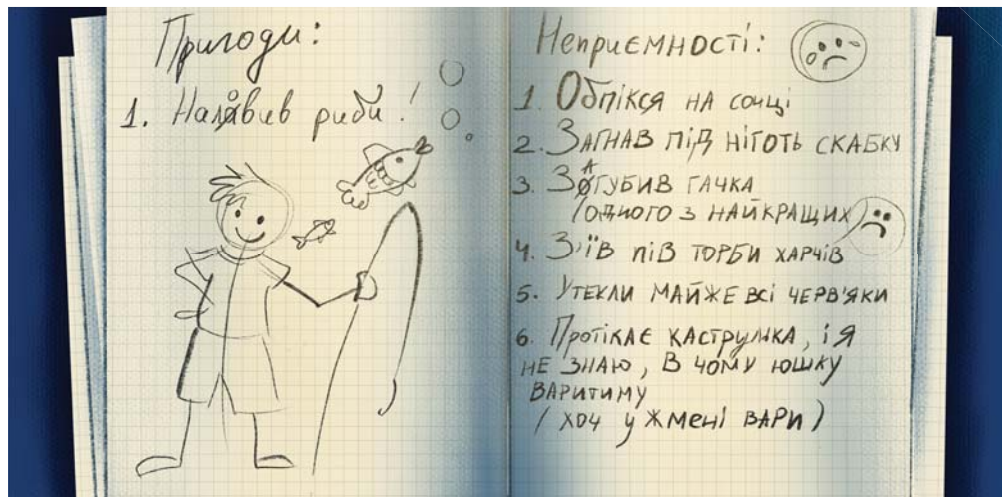 Пригоди:
1. Наловив риби!
Неприємності:
1. Обпікся на сонці
2. Загнав під ніготь скабку
3. Загубив гачка
(одного з найкращих)
4. З'їв пів торби харчів
5. Утекли майже всі черв'яки
6. Протікає каструлька, і я
не знаю, в чому юшку
варитиму
(хоч у жмені вари)